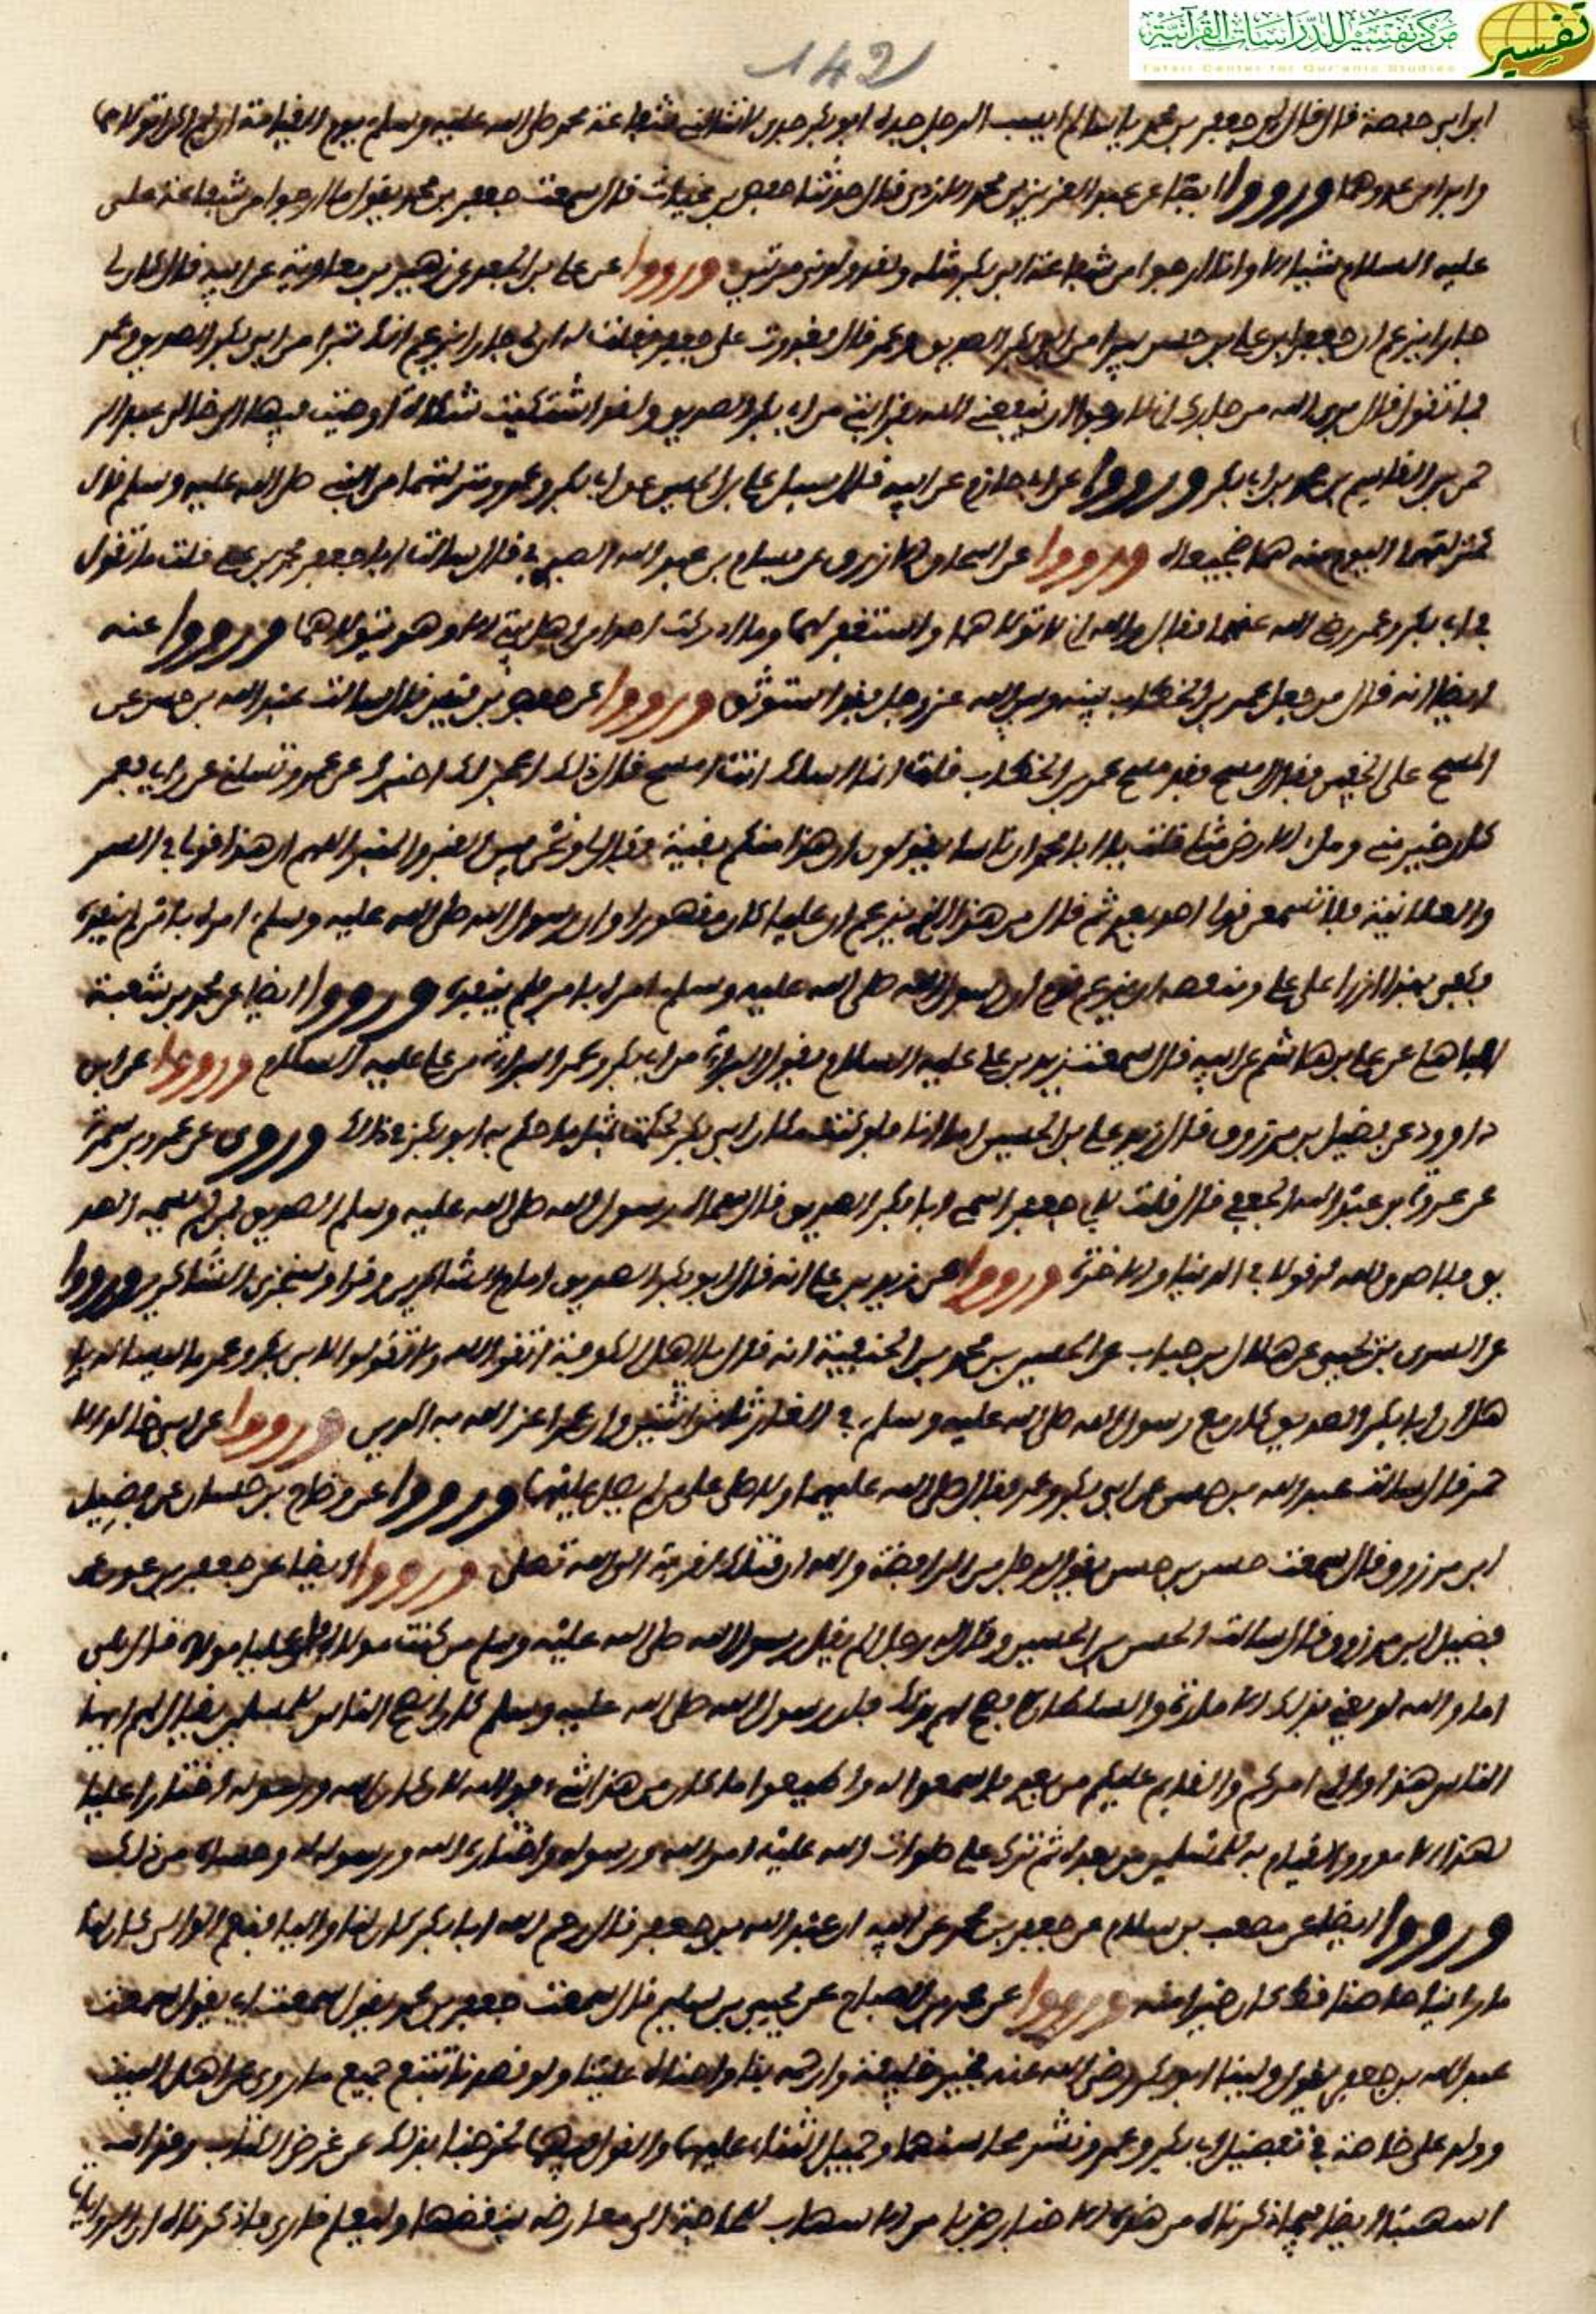 مركز تفسير للدراسات القرآنية
تفسير
Tafsir Center for Qur'anic Studies
142
ابن ابي حفصة قال قال لي جعفر بن محمد يا سالم ايسب الرجل جده ابو بكر جدي لا نالتني شفاعة محمد صلى الله عليه وسلم يوم القيامة ان لم اكن اتولاهما
وابرا من عدوهما ورووا ايضا عن عبد العزيز بن محمد الازدي قال حدثنا حفص بن غياث قال سمعت جعفر بن محمد يقول ما ارجوا من شفاعة علي
عليه السلام شيا الا وانا ارجوا من شفاعة ابي بكر مثله ولقد ولدني مرتين ورووا عن علي بن الجعد عن زهير بن معاوية عن ابيه قال كان لي
جار يزعم ان جعفر بن علي بن حسين يبرا من ابي بكر الصديق وعمر قال فغدوت على جعفر فقلت له ان لي جارا يزعم انك تتبرا من ابي بكر الصديق وعمر
فما تقول قال بري الله من جارك اني لارجوا ان ينفعني الله بقرابتي من ابي بكر الصديق ولقد اشتكيت شكاة اوصيت فيها الى خالي عبد الر
حمن بن القاسم بن محمد بن ابي بكر ورووا عن ابن ابي حازم عن ابيه قال سيل علي بن الحسين عن ابي بكر وعمر ومنزلتهما من النبي صلى الله عليه وسلم قال
كمنزلتهما اليوم منه هما ضجيعاه ورووا عن اسحاق الازرق عن بسام بن عبد الله الصيرفي قال سالت ابا جعفر محمد بن علي قلت ما تقول
في ابي بكر وعمر رضي الله عنهما فقال والله اني لاتولاهما واستغفر لهما وما ادركت احدا من اهل بيتي الا وهو يتولاهما ورووا عنه
ايضا انه قال من جعل عمر بن الخطاب بينه وبين الله عز وجل فقد استوثق ورووا عن حفص بن قيس قال سالت عبد الله بن حسن عن
المسح على الخفين فقال امسح فقد مسح عمر بن الخطاب فقلت انما اسالك انت امسح قال ذلك اعجز لك اخبرك عن عمر وتسلني عن رايي فعمر
كان خير مني ومل الارض مثلي قلت يا ابا محمد ان ناسا يقولون ان هذا منكم تقية فقال لي ونحن بين القبر والمنبر اللهم ان هذا قولي في السر
والعلانية فلا تسمع قول احد بعدي ثم قال من هذا الذي يزعم ان عليا كان مقهورا وان رسول الله صلى الله عليه وسلم امره بامر لم ينفذه
فكفى بهذا ازرا على علي ومنقصة ان يزعم قوم ان رسول الله صلى الله عليه وسلم امره بامر فلم ينفذه ورووا ايضا عن محمد بن شعبة
عن علي بن هاشم عن ابيه قال سمعت زيد بن علي عليه السلام يقول البراة من ابي بكر وعمر البراة من علي عليه السلام ورووا عن ابن
داوود عن فضيل بن مرزوق قال زيد بن علي بن الحسين اما انا فلو كنت مكان ابي بكر لحكمت بمثل ما حكم به ابو بكر في فدك وروى عن عمرو بن شمر
عن عروة بن عبد الله الجعفي قال قلت لابي جعفر اسمي ابا بكر الصديق قال سماه رسول الله صلى الله عليه وسلم الصديق فمن لم يسميه الصد
يق فلا صدق الله له قولا في الدنيا والاخرة ورووا عن زيد بن علي انه قال ابو بكر الصديق امام الشاكرين وقرا وسنجزي الشاكرين ورووا
عن السري بن يحيى عن هلال بن خباب عن الحسن بن محمد بن الحنفية انه قال يا اهل الكوفة اتقوا الله ولا تقولوا لابي بكر وعمر ما ليسا له با
هل ان ابا بكر الصديق كان مع رسول الله صلى الله عليه وسلم في الغار ثاني اثنين وان عمر اعز الله به الدين ورووا عن ابي خالد الا
حمر قال سالت عبد الله بن حسن عن ابي بكر وعمر فقال صلى الله عليهما ولا صلى على من لم يصل عليهما ورووا عن وضاح بن حسان عن فضيل
ابن مرزوق قال سمعت حسن بن حسن يقول لرجل من الرافضة والله ان قتلك لقربة الى الله تعالى ورووا ايضا عن جعفر بن عون عن
فضيل ابن مرزوق قال سالت الحسن بن الحسين وقال له رجل الم يقل رسول الله صلى الله عليه وسلم من كنت مولاه فعلي مولاه قال بلى
اما والله لو يعني بذلك الامارة والسلطان لافصح لهم بذلك فان رسول الله صلى الله عليه وسلم كان انصح الناس للمسلمين فقال لهم ايها
الناس هذا والي امركم والقايم عليكم من بعدي فاسمعوا له واطيعوا ما كان من هذا شي فوالله لان كان الله ورسوله اختار عليا
لهذا الامر والقيام به للمسلمين من بعده ثم ترك علي صلوات الله عليه امر الله ورسوله واختار الله ورسوله وحاشاه من ذلك
ورووا ايضا عن مصعب بن سلام عن جعفر بن محمد عن ابيه ان عبد الله بن جعفر قال رحم الله ابا بكر كان لنا واليا فنعم الوالي كان لنا
ما راينا حاضنا قط كان خيرا منه ورووا عن محمد بن الصباح عن يحيى بن سليم قال سمعت جعفر بن محمد يقول سمعت ابي يقول سمعت
عبد الله بن جعفر يقول ولينا ابو بكر رضي الله عنه فخير خليفة وارحمه بنا واحناه علينا ولو قصدنا تتبع جميع ما روي عن اهل البيت
وولد علي خاصة في تفضيل ابي بكر وعمر ونشر محاسنهما وجميل الثناء عليهما والقول فيهما لخرجنا بذلك عن غرض الكتاب وقد
اسهبنا ايضا فيما ذكرناه من هذه الاخبار ضربا من الاسهاب للحاجة الى معارضة بنقضها وليعلم قاري ما ذكرناه ان الروايات